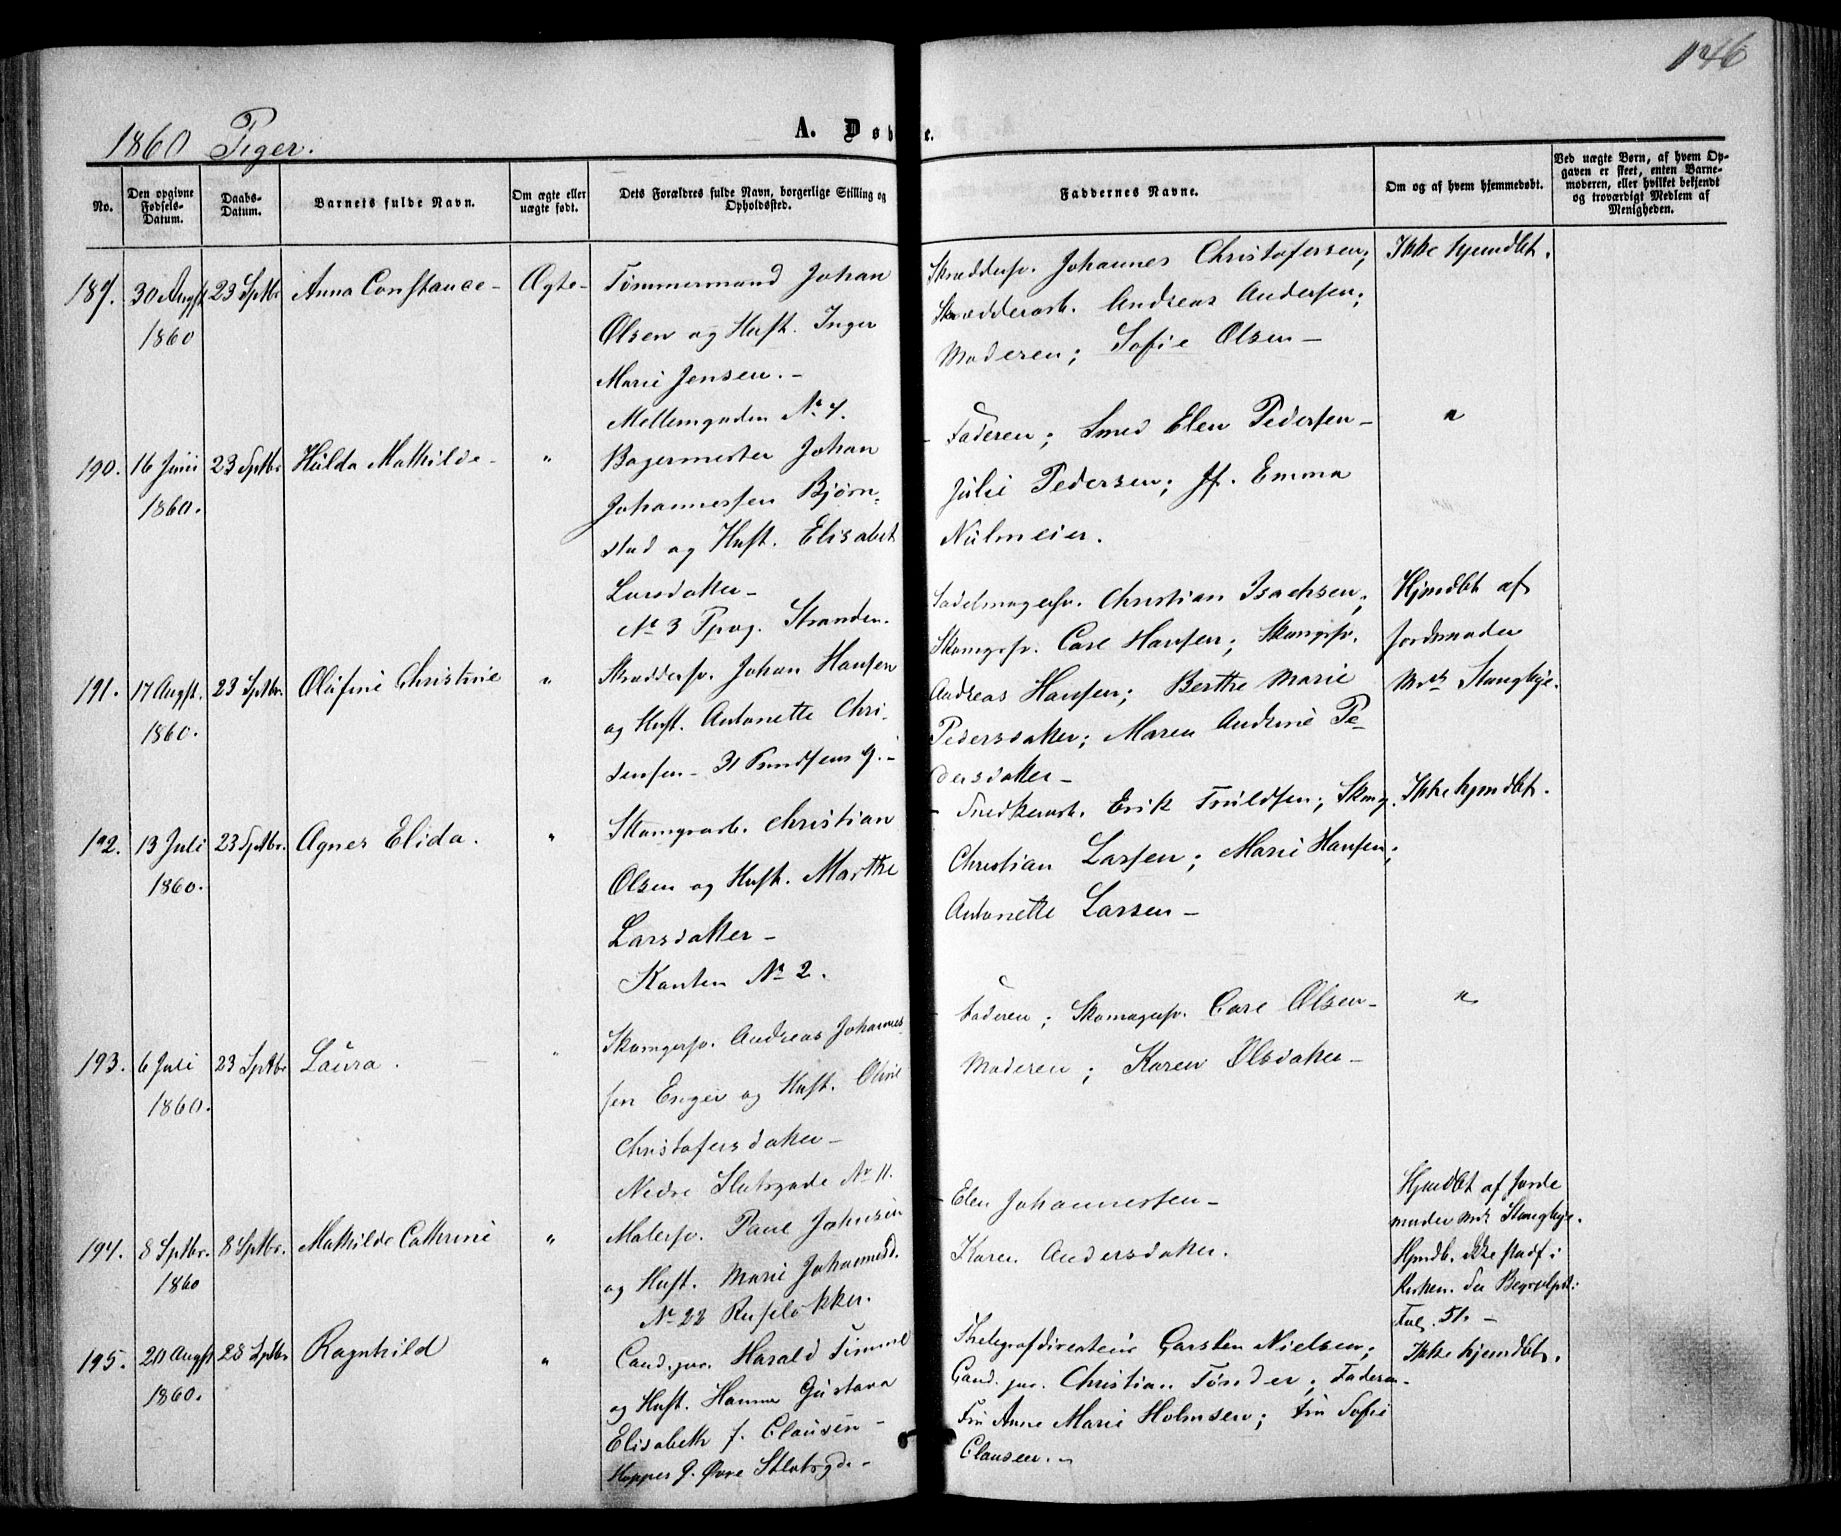 146
1860 Piger.
A. Døbte.
No.
Den opgivne Fødsels-Datum.
Daabs-Datum.
Barnets fulde Navn.
Om ægte eller uægte født.
Dets Forældres fulde Navn, borgerlige Stilling og Opholdssted.
Faddernes Navne.
Om og af hvem hjemmedøbt.
Ved uægte Børn, af hvem Opgaven er skeet, enten Barnemoderen, eller hvilket bekjendt og troværdigt Medlem af Menigheden.
189. 30 Augst 1860
23 Sptbr.
Anna Constance -
Ægte -
Tømmermand Johan
Olsen og Hust. Inger
Marie Jensen. -
Mellemgaden No 7.
Skræddersv. Johannes Christofersen;
Skrædderarb. Andreas Andersen;
Moderen; Sofie Olsen -
Ikke hjemdbt.
190. 16 Juni 1860.
23 Sptbr.
Hulda Mathilde -
"
Bagermester Johan
Johannessen Bjørn-
stad og Hust. Elisabet
Larsdatter -
No 3 Tpvg. Stranden.
- Faderen; Smed Elen Pedersen -
Julie Pedersen; Jf. Emma
Nulmeier.
"
191. 17 Augst. 1860.
23 Sptbr.
Olufine Christine
"
Skræddersv. Johan Hansen
og Hust. Antonette Chri-
stensen - 31
Sadelmagersv. Christian Isachsen;
Skomgrsv. Carl Hansen; Skomgrsv.
Andreas Hansen; Berthe Marie
Pedersdatter; Maren Andrine Pe-
dersdatter -
Hjemdbt af
Jordemoder
Mad. Stangbye.
192. 13 Juli 1860.
23 Sptbr.
Agnes Elida.
"
Skomgrarb. Christian
Olsen og Hust. Marthe
Larsdatter -
Kanten No 2.
- Snedkerarb. Erik Truldsen; Skomg.
Christian Larsen; Marie Hansen;
Antonette Larsen -
Ikke hjemdbt.
193. 6 Juli 1860.
23 Sptbr
Laura.
"
Skomgersv. Andreas Johannes-
sen Enger og Hust. Oline
Christofersdatter -
Nedre Slotsgade No 11.
Faderen; Skomagersv. Carl Olsen -
Moderen; Karen Olsdatter -
"
194. 8 Sptbr. 1860
8 Sptbr.
Mathilde Cathrine
"
Malersv. Paul Johnsen
og Hust. Marie Johannesd.
No 22 Ruseløkken.
- Elen Johannessen -
Karen Andersdatter.
Hjemdbt af Jorde
moder Mad. Stangbye.
Hjemdb. ikke stadf. i
Kirken. See Begravpr.:
Fol. 51. -
195. 20 Augst 1860.
23 Sptbr
Ragnhild
"
Cand. jur. Harald Timme
og Hust. Hanna Gustava
Elisabeth f. Clausen -
Hoppes G. Øvre Slotsgd. -
Thelegrafdirecteur Carsten Nielsen;
Cand. jur. Christian Tønder; Faderen -
Fru Anne Marie Holmsen; Fru Sofie
Clausen. -
Ikke hjemdbt.